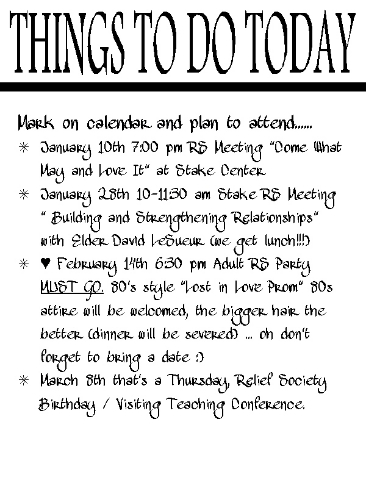 THINGS TO DO TODAY
Mark on calendar and plan to attend......
* January 10th 7:00 pm RS Meeting "Come What
May and Love It" at Stake Center
* January 28th 10-11:30 am Stake RS Meeting
" Building and Strengthening Relationships"
with Elder David LeSueur (we get lunch!!!)
* ♥ February 14th 6:30 pm Adult RS Party
MUST GO. 80's style "Lost in Love Prom" 80s
attire will be welcomed, the bigger hair the
better (dinner will be severed) ... oh don't
forget to bring a date :)
* March 8th that's a Thursday, Relief Society
Birthday / Visiting Teaching Conference.